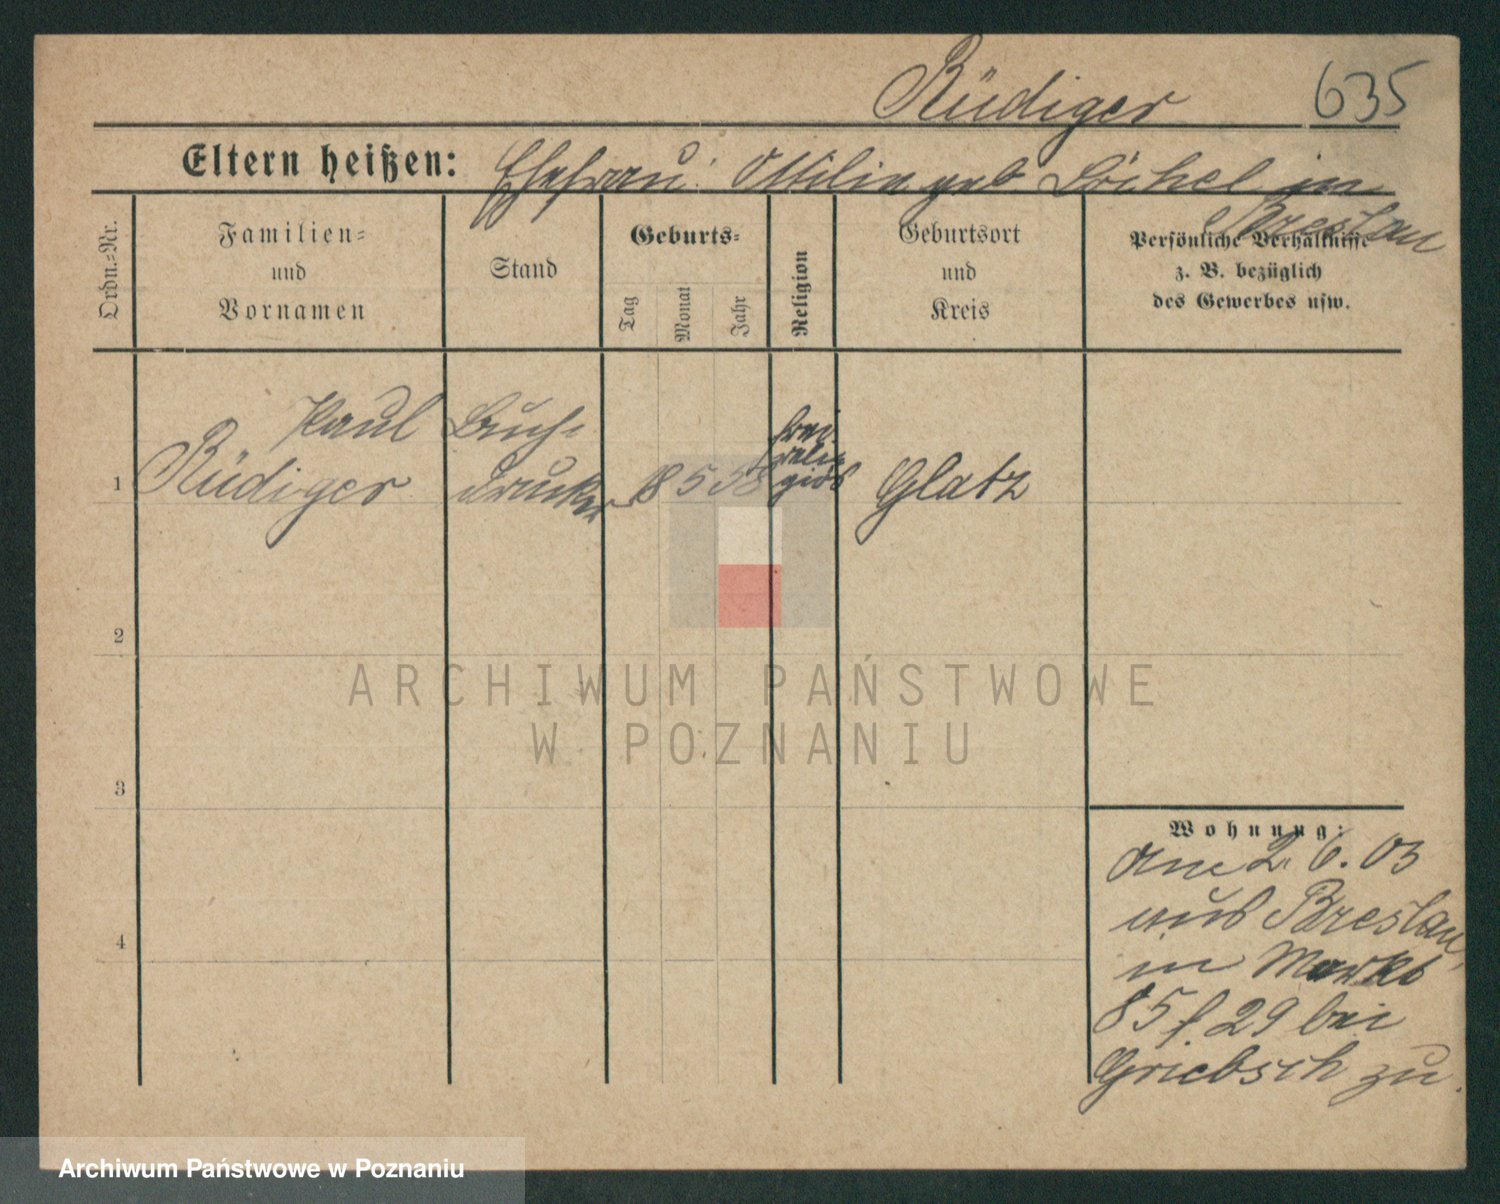 Rüdiger 635
Eltern heißen: Ehefrau: Ottilie geb in
Breslau
Ordn.=Nr.
Familien=
und
Vornamen
Stand
Geburts=
Tag
Monat
Jahr
Religion
Geburtsort
und
Kreis
Persönliche Verhältnisse
z. B. bezüglich
des Gewerbes usw.
1
Paul
Rüdiger
Buch=
drucker
18 5 58
frei
relig
giös
Glatz
2
3
4
Wohnung:
am 2. 6. 03
aus Breslau,
in Markt
85 f. 29 bei
Griebsch zu.
ARCHIWUM PAŃSTWOWE
W POZNANIU
Archiwum Państwowe w Poznaniu